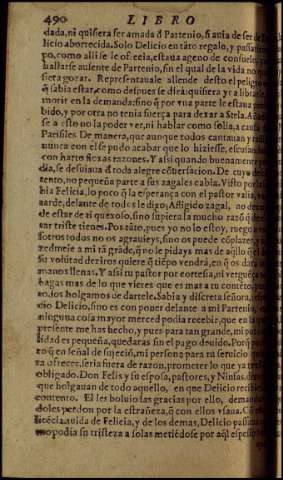 490 LIBRO
dada, ni quisiera ser amada d̃ Partenio, si auia de ser de
licio aborrecida. Solo Delicio en tãto regalo, y passatiem
po, como alli se le ofrecia, estaua ageno de consuelo, y
hallarse ausente de Partenio, sin el qual de la vida no qui
siera gozar. Representauale allende desto el peligro
q̃ sabia estar, como despues se dira: quisiera yr a librarle
morir en la demanda: sino q̃ por vna parte le estaua prohi
bido, y por otra no tenia fuerça para dexar a Stela. Añad
se a esto no la poder ver, ni hablar como solia, a causa de
Parisiles De manera, que aunque todos cantauan y tañ
nunca con el se pudo acabar que lo hiziesse, escusandose
con harto floxas razones. Y assi quando buenamente po
dia, se desuiaua d̃ toda alegre cõuersacion. De cuyo des
tento, no pequeña parte a sus zagales cabia. Visto por la sa
bia Felicia, lo poco q̃ la esperança con el pastor valia, vna
tarde, delante de todos le dixo; Afligido zagal, no dexara
de estar de ti quexoso, sino supiera la mucho razõ q̃ de es
tar triste tienes. Por tãto, pues yo no lo estoy, ruego a
sotros todos no os agrauieys, sino os puede cõplazer, y
zedme a mi tã grãde, q̃ no le pidays mas de aq̃llo q̃ el de
su volũtad deziros quiere q̃ tiẽpo vendrá, en q̃ os dará
manos llenas. Y assi tu pastor por cortesia, ni verguẽça
hagas mas de lo que vieres que es mas a tu contẽto, por
no, los holgamos de dartele. Sabia y discreta señora,
cio Delicio, sino es con poner delante a mi Partenio,
ninguna cosa mayor merced podia recebir, que en la que
presente me has hecho, y pues para tan grande, mi pos
lidad es pequeña, quedaras sin el pago deuido. Porq̃
ro q̃ en señal de sujeciõ, mi persona para tu seruicio
ra ofrecer, seria fuera de razon, prometer lo que ya tre
obligado. Don Felis y su esposa, pastores, y Ninfas, dixeron
que holgauan de todo aquello, en que Delicio recibie
contento. El les boluio las gracias por ello, demandan
doles perdon por la estrañeza, q̃ con ellos vsaua. Con
licẽcia, auida de Felicia, y de los demas, Delicio passaua
mo podia su tristeza a solas metiẽdose por aq̃l espesso